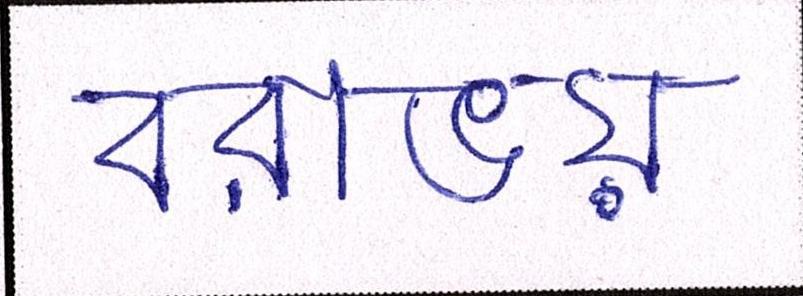 বরাভয়